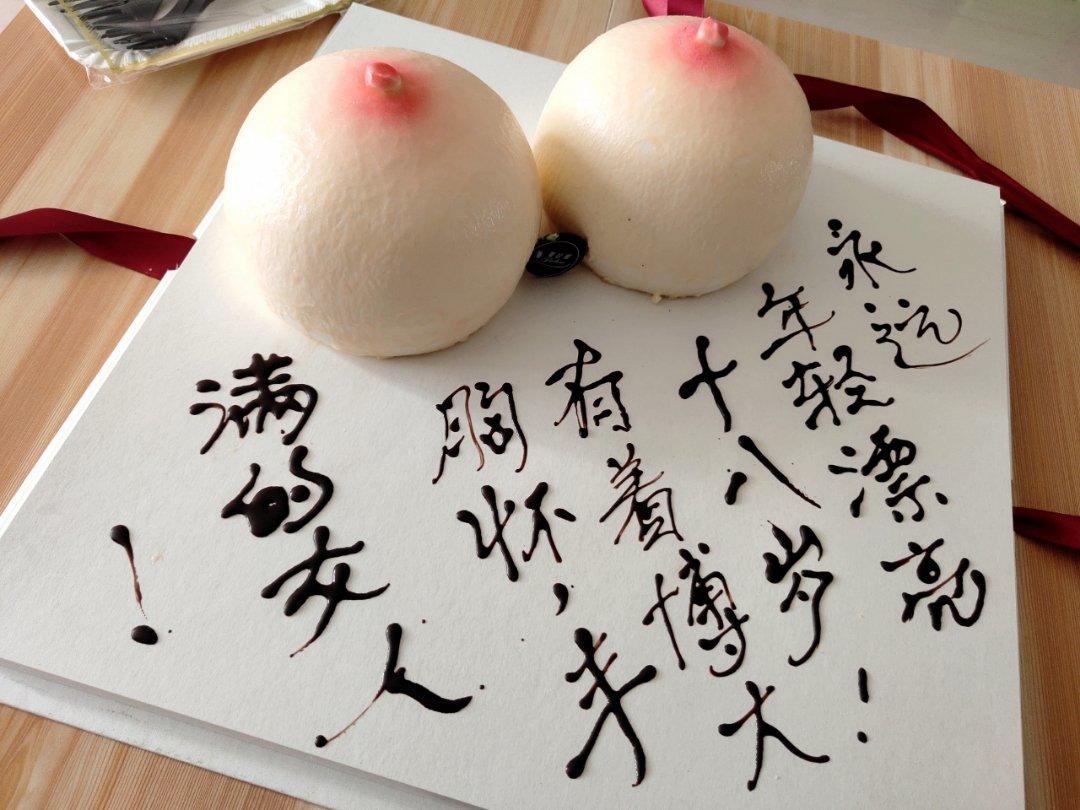 永远
年轻漂亮
十八岁！
有着博大
胸怀，丰
满的女人
！